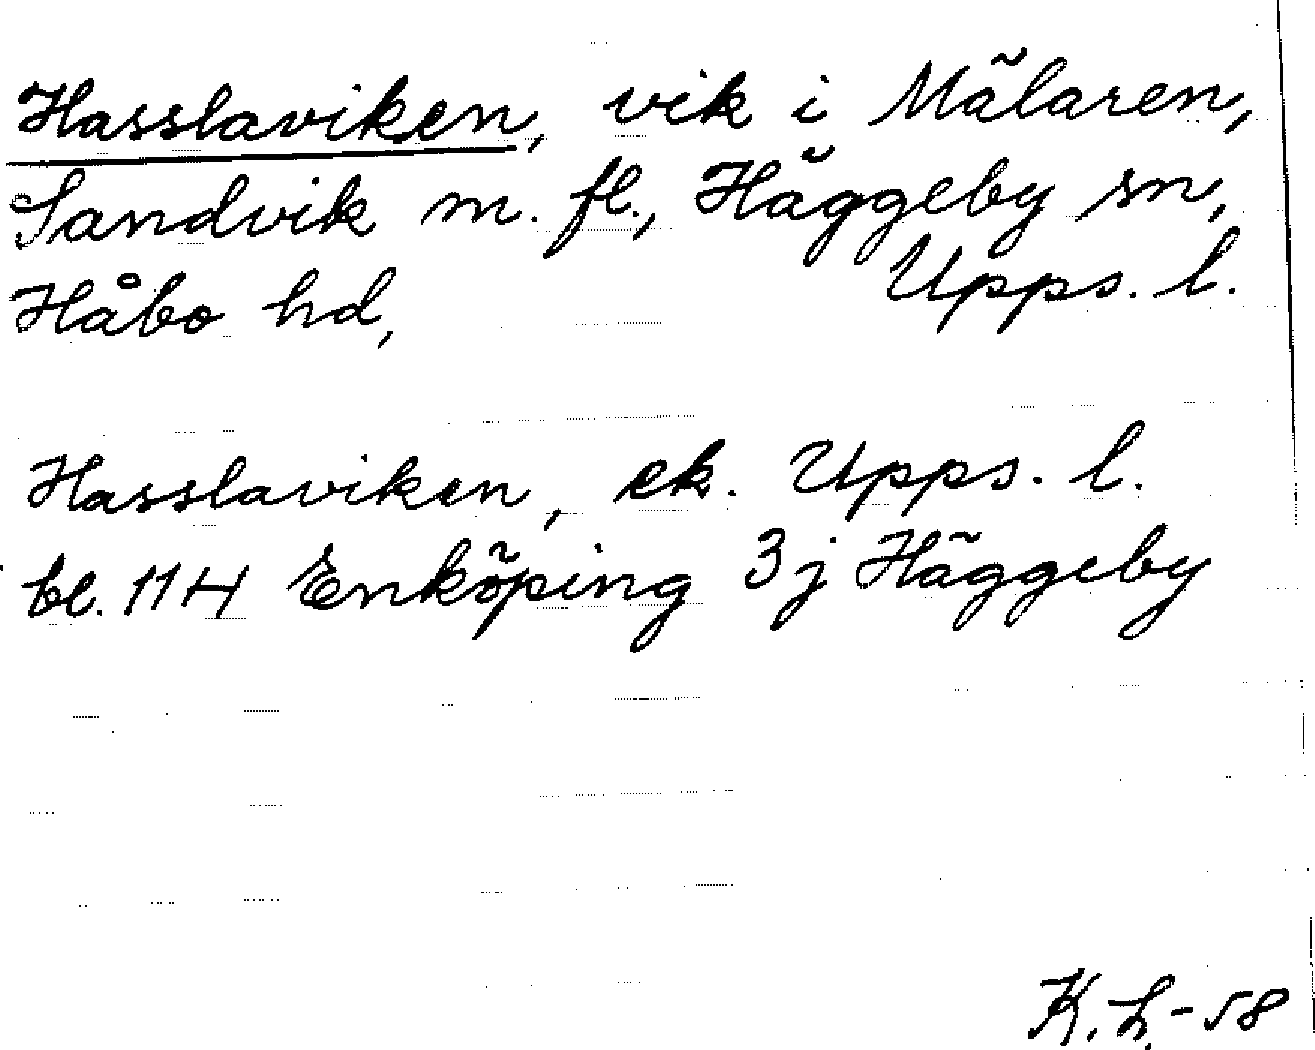 Hasslaviken, vik i Mälaren,
Sandvik m. fl., Häggeby sn,
Håbo hd, Upps. l.
Hasslaviken, ek. Upps. l.
bl. 114 Enköping 3j Häggeby
K. L. - 58